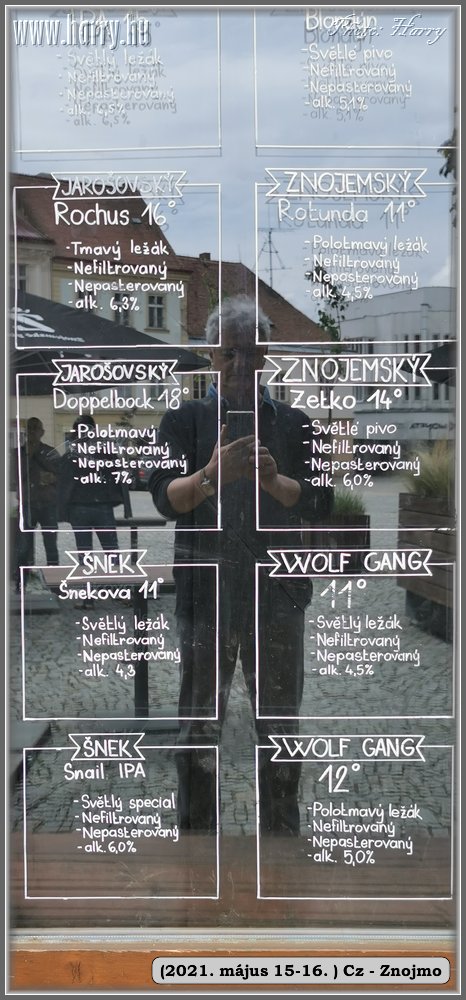 www.harry.hu
Photo: Harry
IPA 15°
-Světlý ležák
-Nefiltrovaný
-Nepasterovaný
-alk. 6,5%
Blondýn
-Světlé pivo
-Nefiltrovaný
-Nepasterovaný
-alk. 5,1%
JAROŠOVSKÝ
Rochus 16°
-Tmavý ležák
-Nefiltrovaný
-Nepasterovaný
-alk. 6,3%
ZNOJEMSKÝ
Rotunda 11°
-Polotmavý ležák
-Nefiltrovaný
-Nepasterovaný
-alk. 4,5%
JAROŠOVSKÝ
Doppelbock 18°
-Polotmavý
-Nefiltrovaný
-Nepasterovaný
-alk. 7%
ZNOJEMSKÝ
Zetko 14°
-Světlé pivo
-Nefiltrovaný
-Nepasterovaný
-alk. 6,0%
ŠNEK
Šnekova 11°
-Světlý ležák
-Nefiltrovaný
-Nepasterovaný
-alk. 4,3
WOLF GANG
11°
-Světlý ležák
-Nefiltrovaný
-Nepasterovaný
-alk. 4,5%
ŠNEK
Snail IPA
-Světlý special
-Nefiltrovaný
-Nepasterovaný
-alk. 6,0%
WOLF GANG
12°
-Polotmavý ležák
-Nefiltrovaný
-Nepasterovaný
-alk. 5,0%
(2021. május 15-16. ) Cz - Znojmo